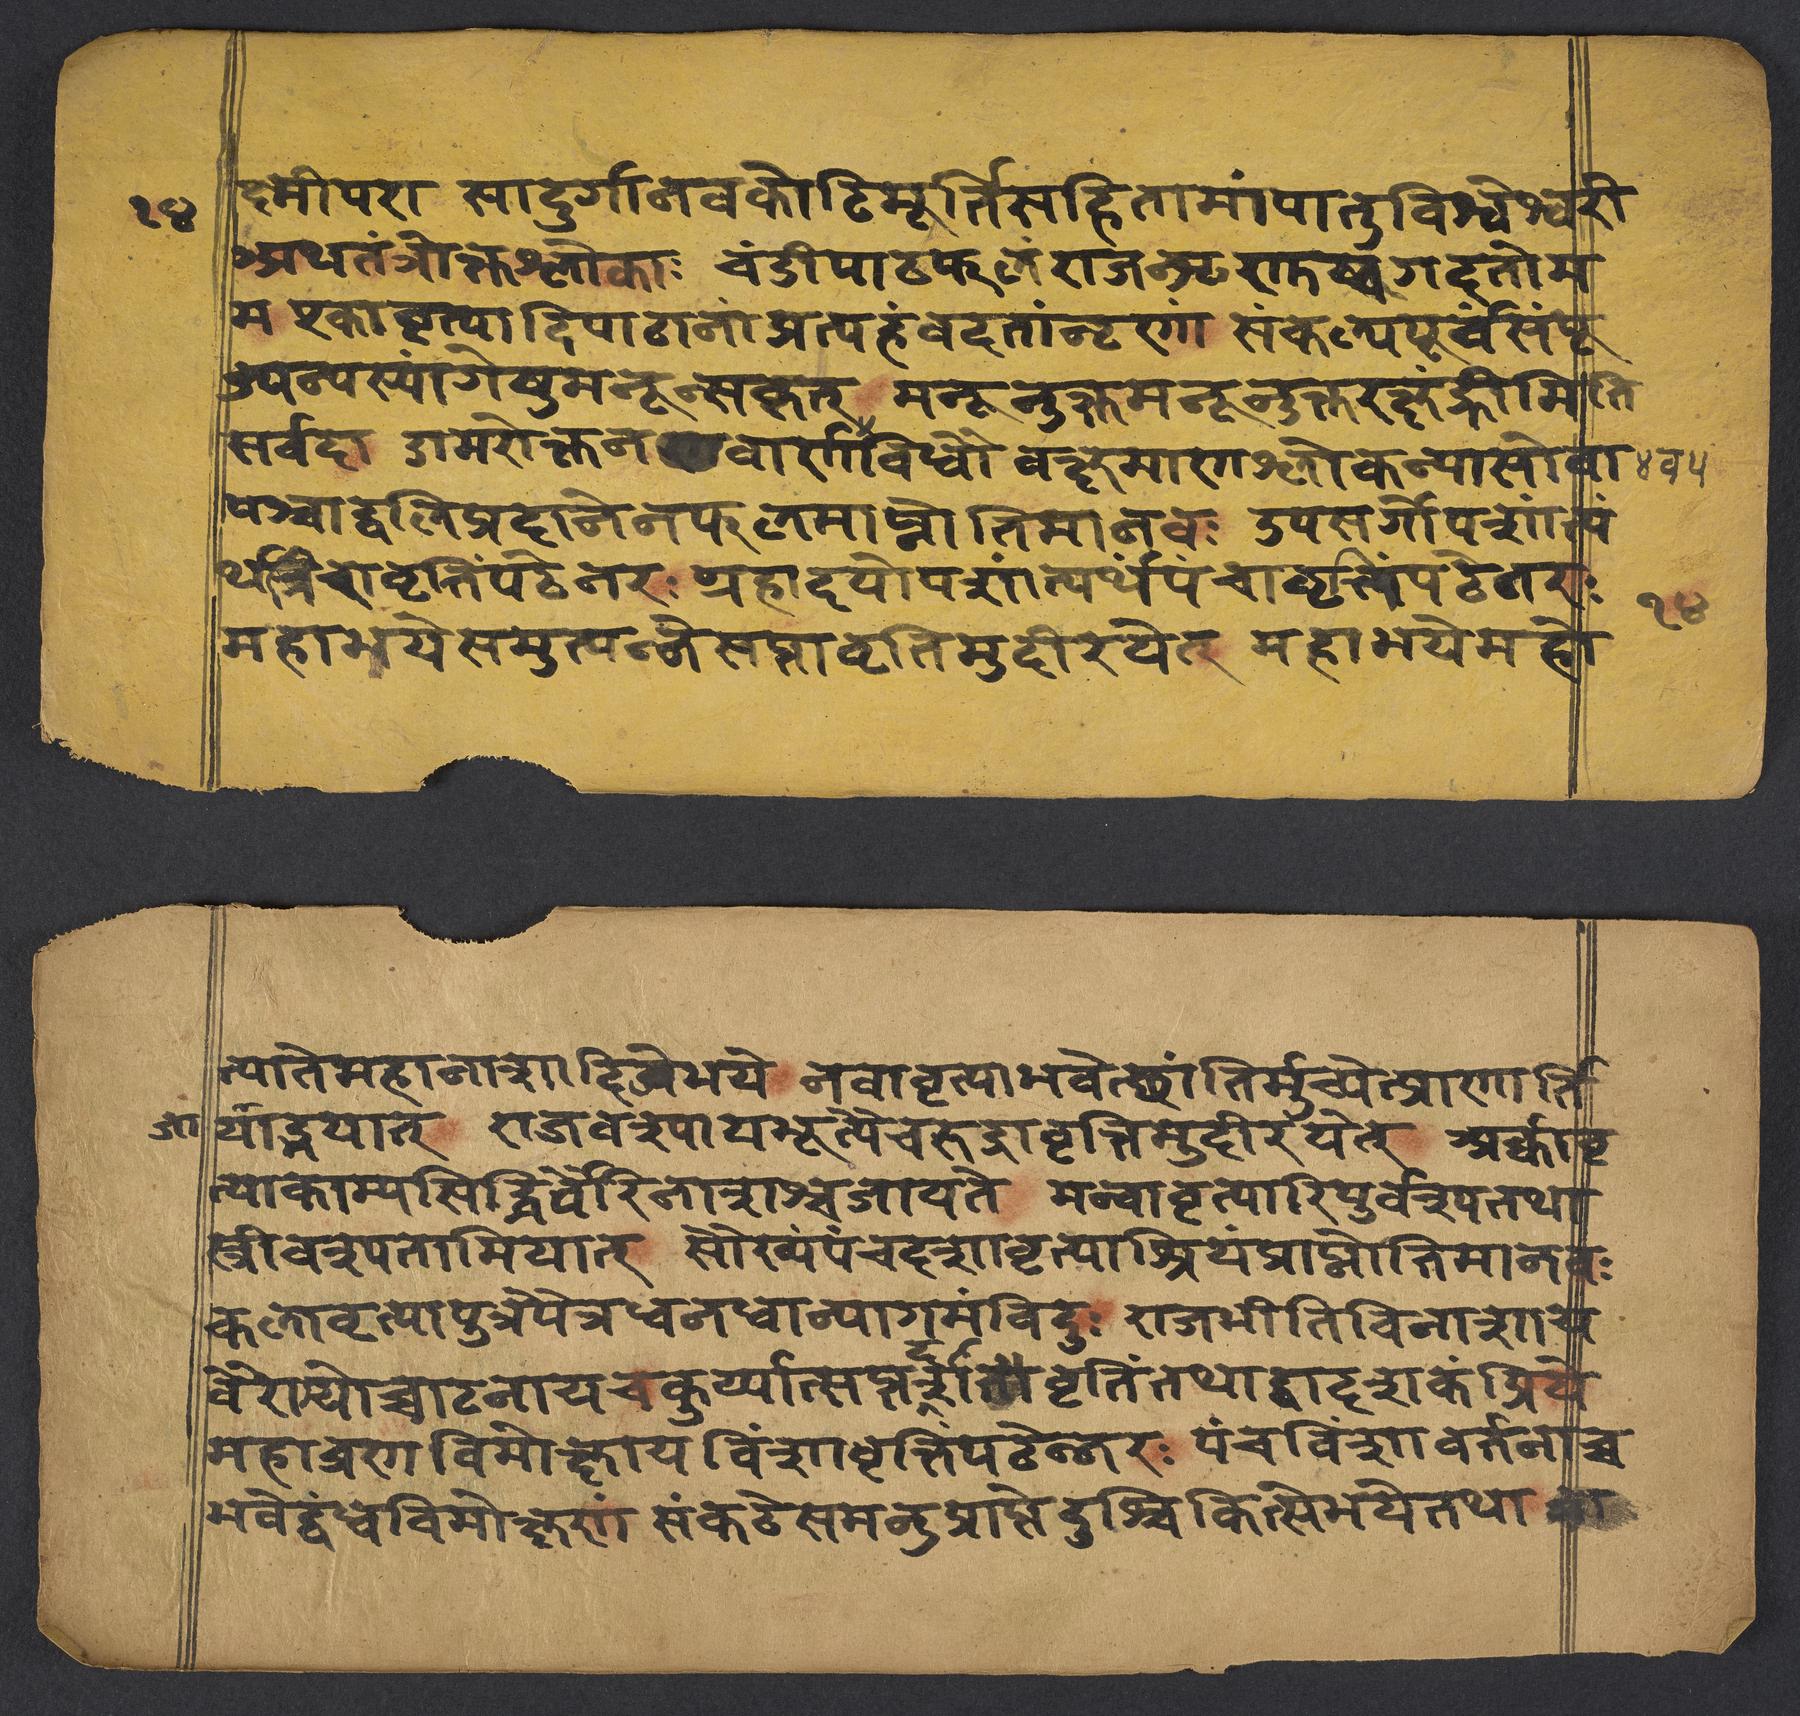 १४
क्ष्मीपरा सादुर्गानवकोटिमूर्तिसहितामांपातुविश्वेश्वरी
अथतंत्रोक्तश्लोकाः चंडीपाठफलंराजन्शृणुष्वगदतोम
म एकावृत्यादिपाठानांप्रत्यहंवदतांनृणां संकल्पपूर्वंसंपू
ज्यन्यस्यांगेषुमनून्सकृत् मनूनुक्तमनूनुक्त
सर्वदा डामरोक्तनवार्णविधौ वक्ष्यमाणश्लोकन्यासोवा
पश्चाद्बलिप्रदानेनफलमाप्नोतिमानवः उपसर्गोपशांत्य
र्थंत्रिरावृत्तिंपठेनरः ग्रहादयोपशांत्यर्थंपंचावृत्तिंपठेनरः
१४
महाभयेसमुत्पन्नेसप्तावृतिमुदीरयेत् महाभयेमहो
त्पातेमहानाशादिकेभये नवावृत्याभवेत्छांतिर्मुच्येत्प्राणार्ति
र्याद्भयात् राजवश्यायभूत्यैचरुद्रावृत्तिमुदीरयेत् अर्कावृ
त्याकाम्यसिद्धिर्वैरिनाशश्चजायते मन्वावृत्यारिपुर्वश्यतथा
स्त्रीवश्यतामियात् सौख्यंपंचदशावृत्याश्रियंप्राप्नोतिमानवः
कलावृत्यापुत्रपौत्रधनधान्यागमंविदुः राजभीतिविनाशाय
वैरास्योच्चाटनायचकुर्य्यात्सप्तदशावृतिंतथाष्टादशकंप्रिये
महाव्रणविमोक्षायविंशावृत्तिंपठेन्नरः पंचविंशावर्तनाच्च
भवेद्बंधविमोक्षणं संकटेसमनुप्राप्तेदुश्चिकित्सेभयेतथा